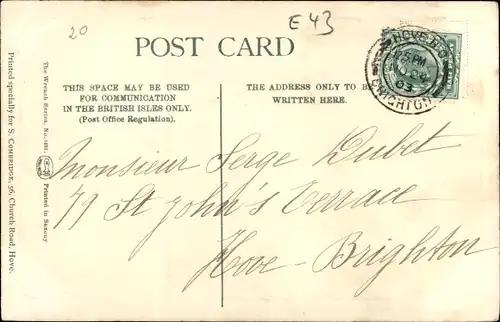 20
E 43
POST CARD
THIS SPACE MAY BE USED
FOR COMMUNICATION
IN THE BRITISH ISLES ONLY.
(Post Office Regulation).
THE ADDRESS ONLY TO BE
WRITTEN HERE.
HOVE
BRIGHTON
PM
03
Monsieur Serge Dubet
79 St John's Terrace
Hove - Brighton
The Wrench Series, No.
Printed in Saxony
Printed specially for S. COMBRIDGE, 56, Church Road, Hove.